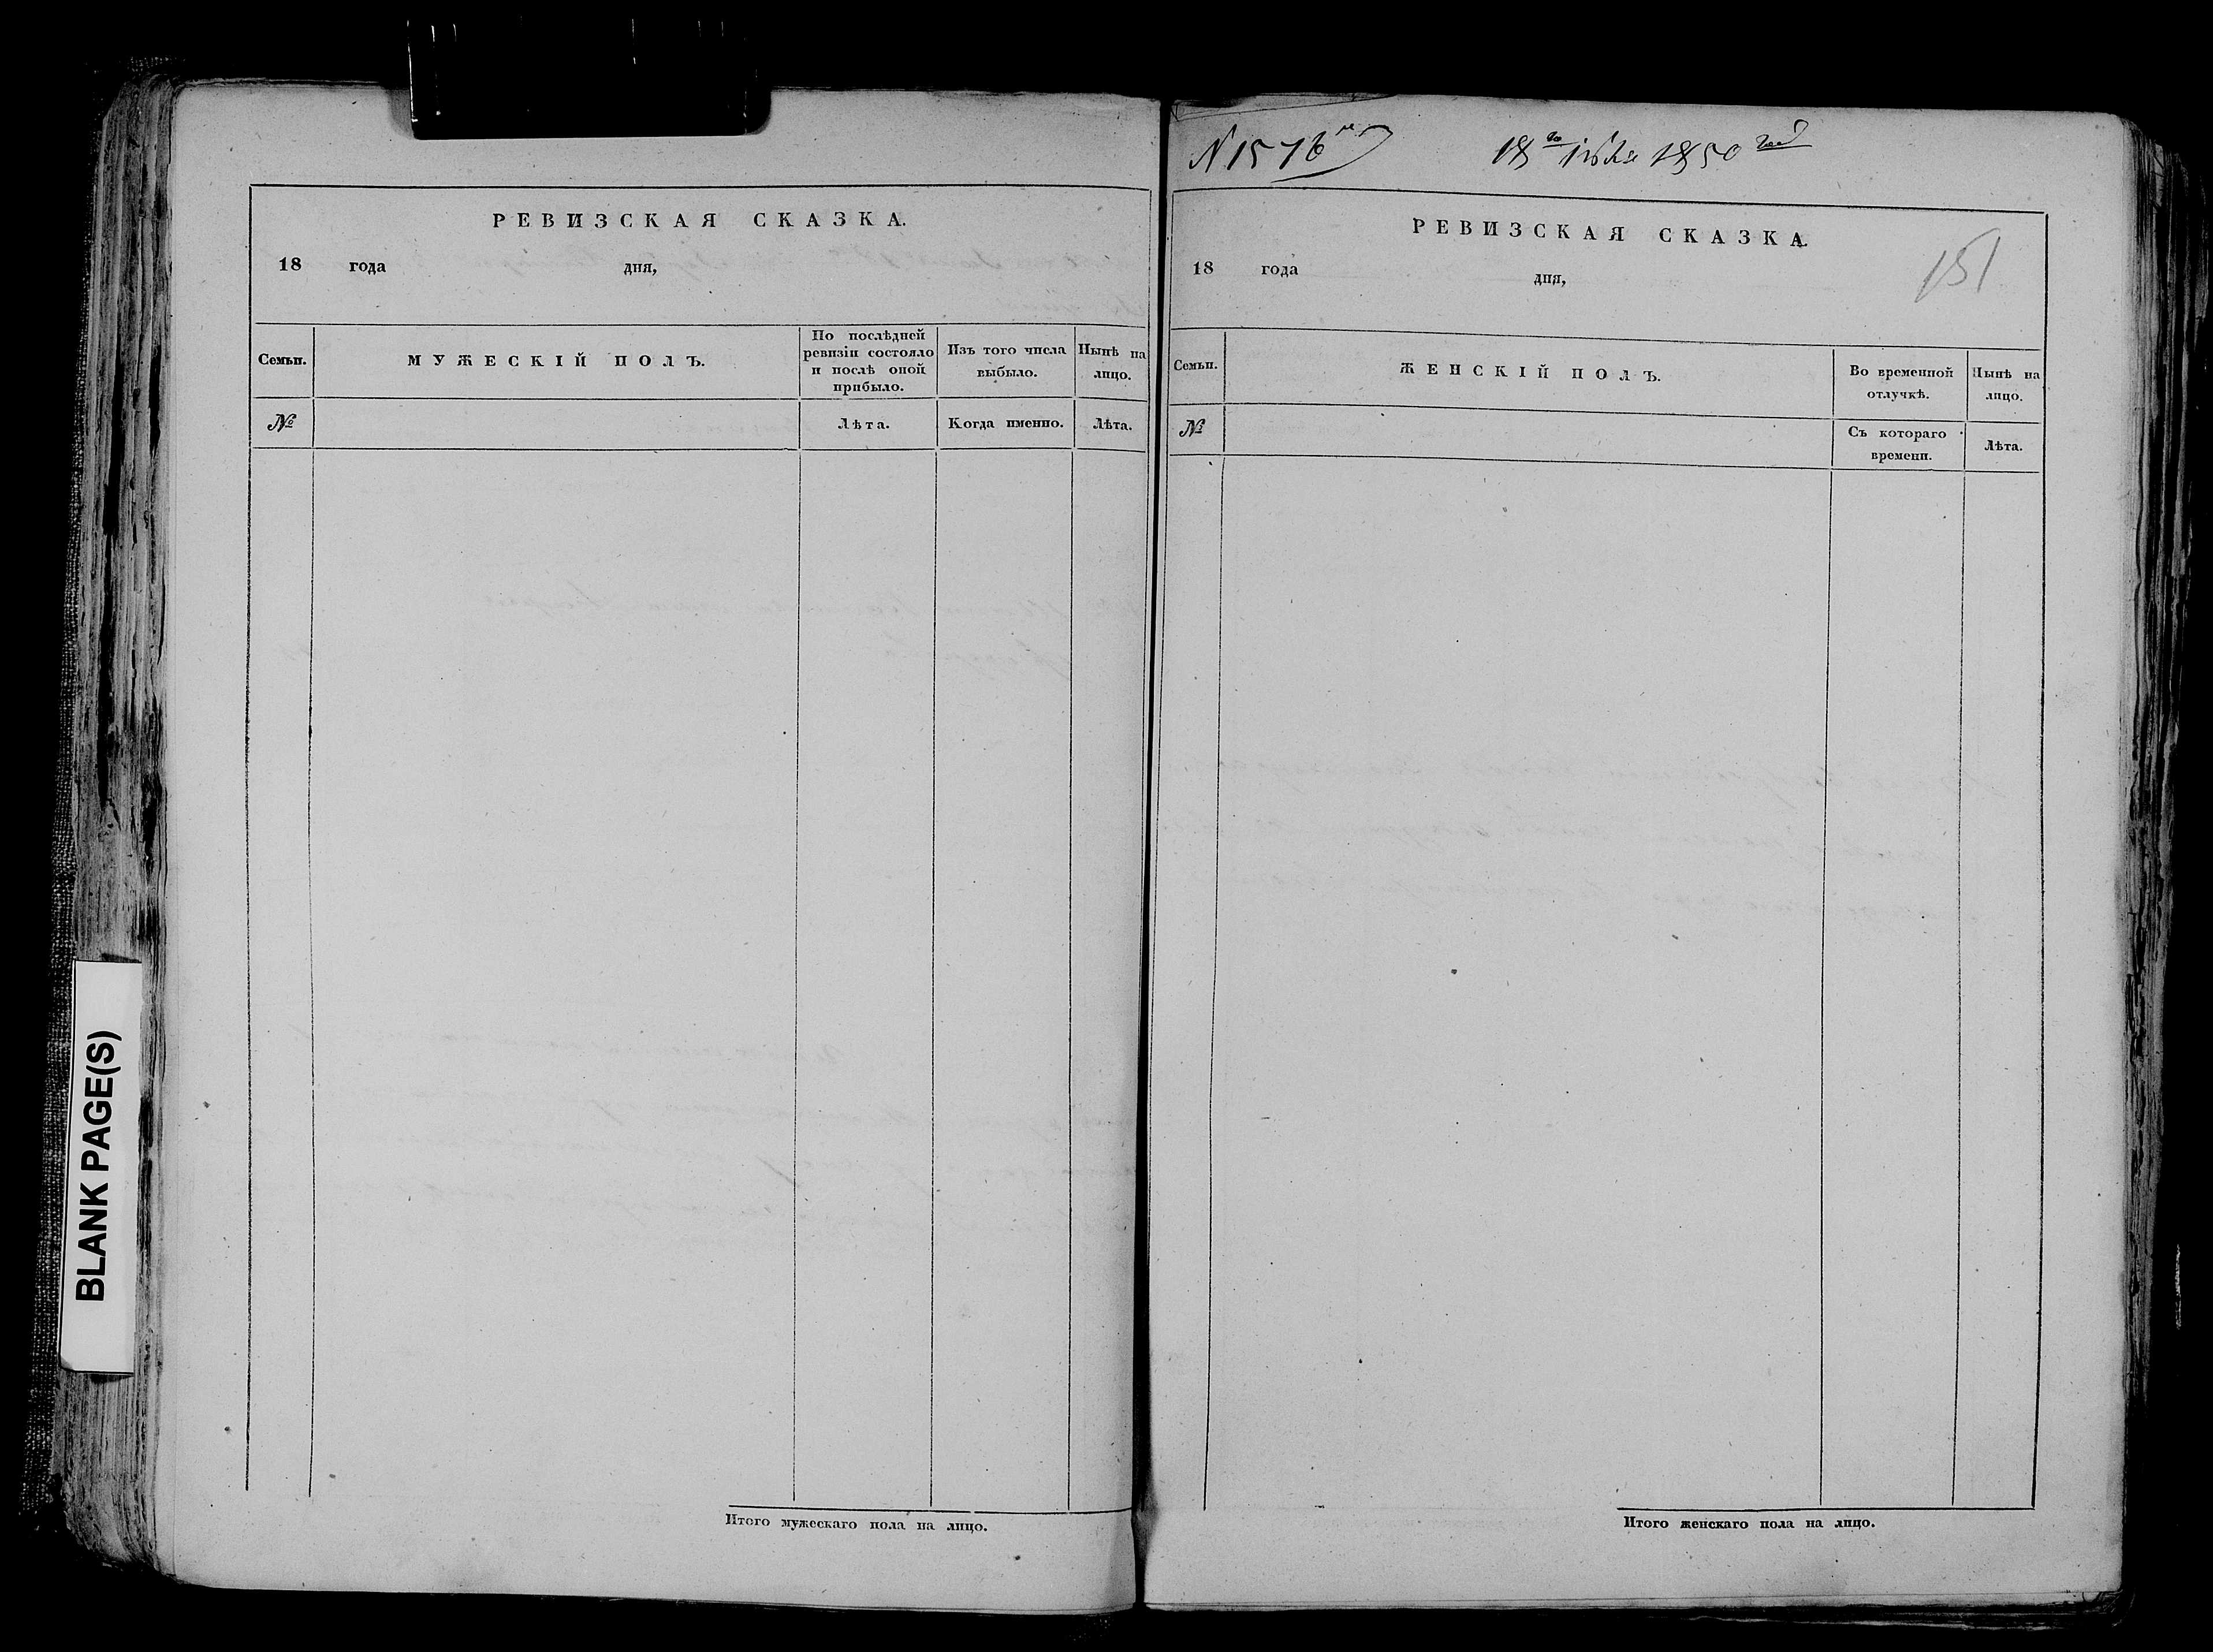 РЕВИЗСКАЯ СКАЗКА.
18 года дня,
Семьи.
МУЖЕСКІЙ ПОЛЪ.
По послѣдней ревизіи состояло и послѣ оной прибыло.
Изъ того числа выбыло.
Нынѣ на лицо.
№
Лѣта.
Когда именно.
Лѣта.
Итого мужескаго пола на лицо.
N 1576
18го Іюля 1850 года
РЕВИЗСКАЯ СКАЗКА.
151
18 года дня,
Семьи.
ЖЕНСКІЙ ПОЛЪ.
Во временной отлучкѣ.
Нынѣ на лицо.
№
Съ котораго времени.
Лѣта.
Итого женскаго пола на лицо.
BLANK PAGE(S)